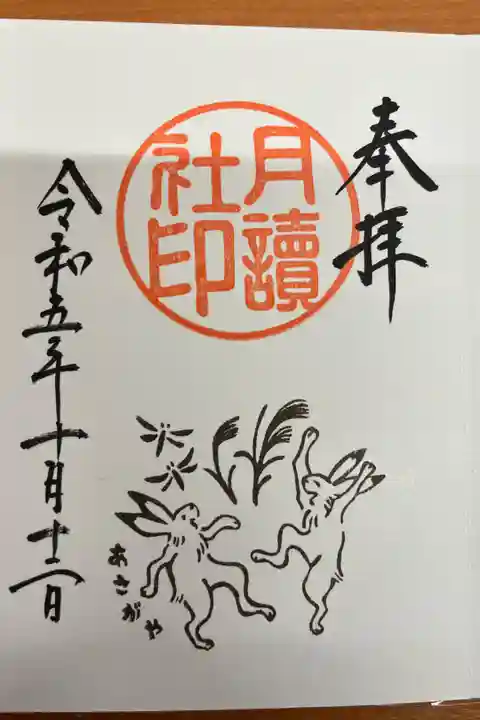 奉拝
月讀
社印
令和五年十月十二日
あさがや